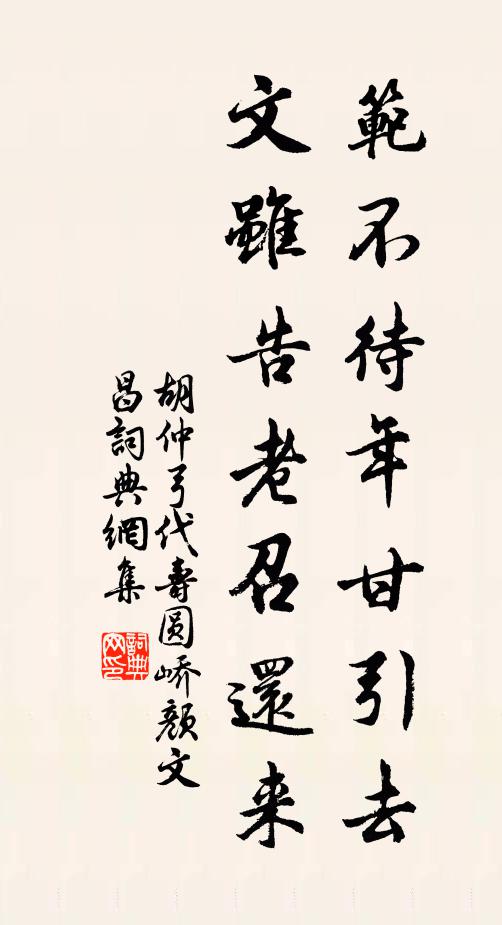 範不待年甘引去
文雖告老召還来
胡仲弓代壽圆嶠顏文
昌詞典網集
詞典网印